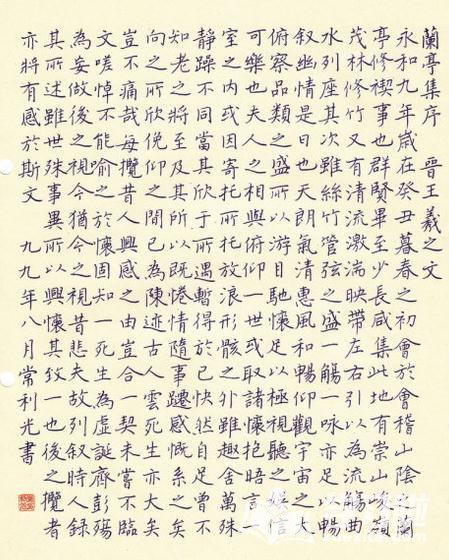 蘭亭集序 晉王羲之文
永和九年歲在癸丑暮春之初會於會稽山陰蘭
亭修禊事也群賢畢至少長咸集此地有崇山峻嶺
茂林修竹又有清流激湍映帶左右引以為流觴曲
水列座其次雖無絲竹管弦之盛一觴一詠亦足以暢
叙幽情是日也天朗氣清惠風和暢仰觀宇宙之大
俯察品類之盛所以游目馳懷足以極視聽之娛信
可樂也夫人之相與俯仰一世或取諸懷抱晤言一
室之內或因寄所托放浪形骸之外雖趣舍萬殊
靜躁不同當其欣于所遇暫得於己快然自足曾不
知老之將至及其所以既惓情隨事遷感慨系之矣
向之所欣俛仰之間已為陳迹古人雲死生亦大矣
豈不痛哉每攬昔人興感之由豈合一契未嘗不臨
文嗟悼不能喻之於懷固知一死生為虛誕齊彭殤
為妄作後之視今猶今之視昔悲夫故列叙時人錄
其所述雖世殊事異所以興懷其致一也後之攬者
亦將有感於斯文 九九年八月常利光書